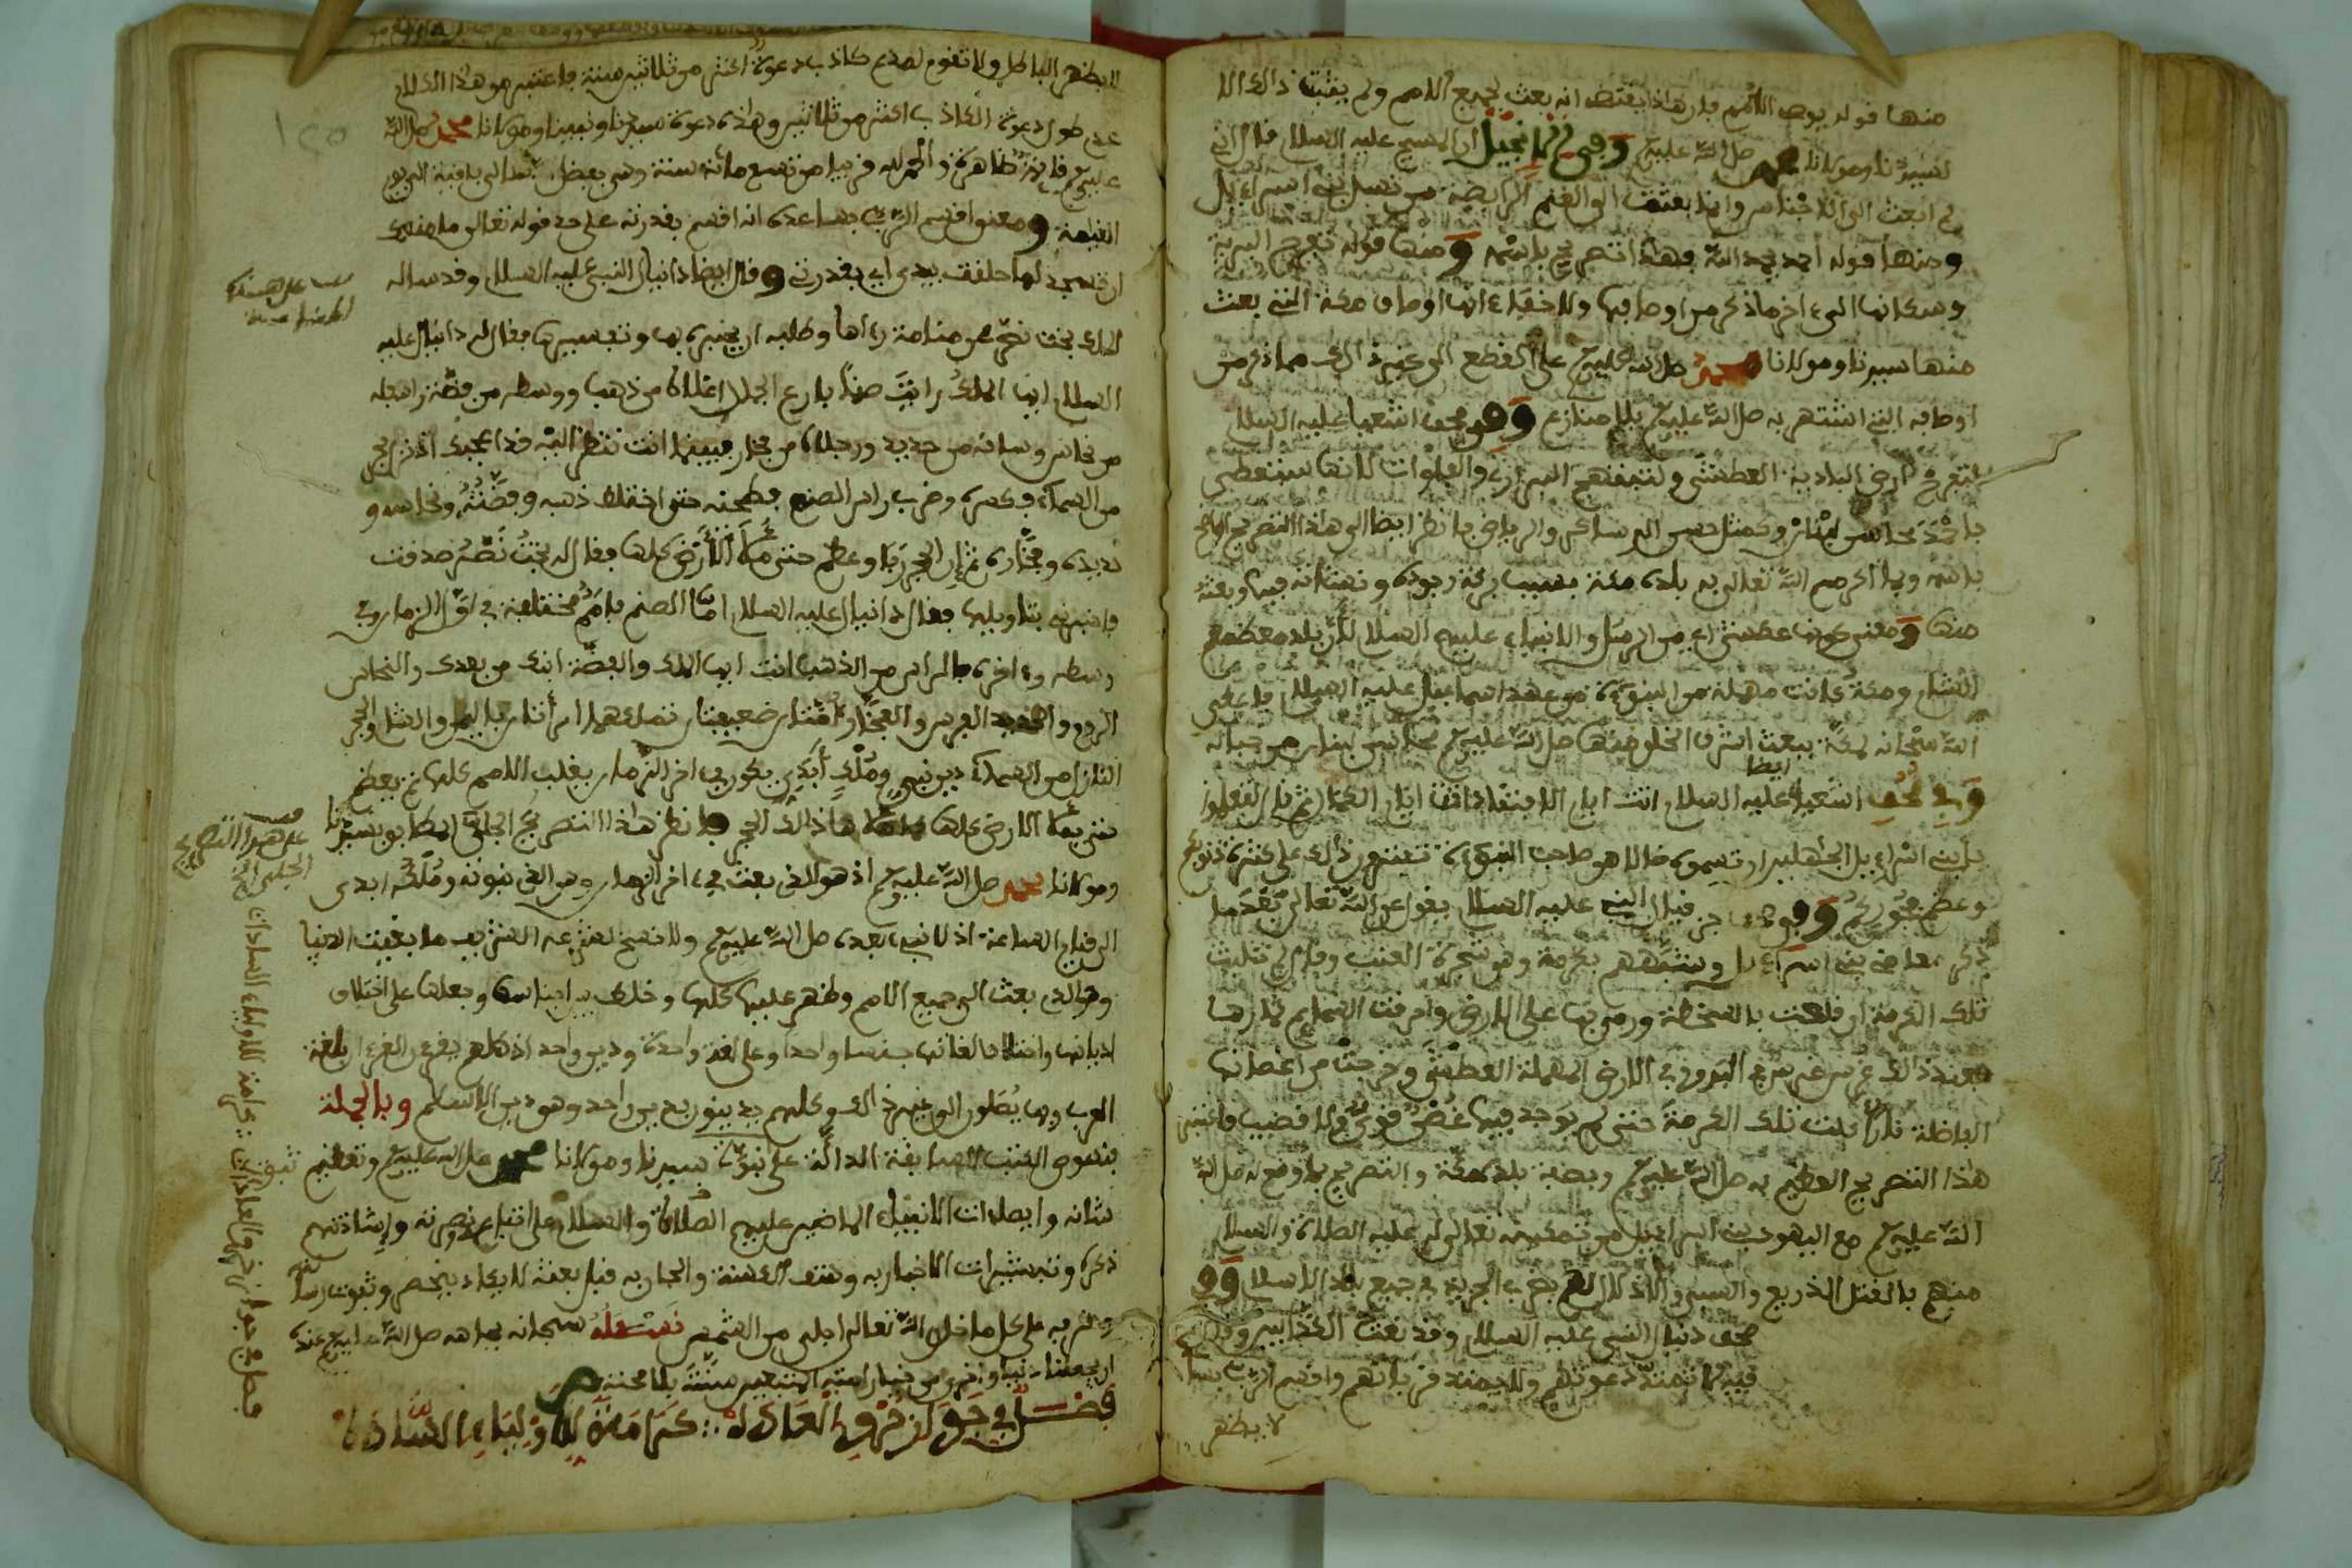 منها قوله يوصى الأمم فإن هذا يقتضى أنه بعث لجميع الأمم ولم يثبت ذالك إلا
لسيدنا ومولانا محمد صلى الله عليه وسلم وفي الإنجيل أن المسيح عليه السلام قال إني
لم أبعث إلى الأجناس وإنما بعثت إلى الغنم الرابضة من نسل بني إسراءيل
ومنها قوله أحمد يحمد الله فهذا تصريح باسمه ومنها قوله تفرح البرية
وسكانها إلى ءاخر ما ذكر من أوصافها ولا خفاء أنها أوصاف مكة التي بعث
منها سيدنا ومولانا محمد صلى الله عليه وسلم على القطع إلى غير ذالك مما ذكر من
أوصافه التي اشتهر به صلى الله عليه وسلم بلا منازع وفي صحف اشعيا عليه السلام
لتفرح أرض البادية العطشى ولتبتهج البراري والفلوات لأنها ستعطى
بأحمد محاسن لبنان وكمثل حسن الدساكر والرياض فانظر أيضا إلى هذا التصريح
باسمه وبما أكرم الله تعالى به بلده مكة بسبب بركة وجوده ونشأته فيها وبعثه
منها ومعنى كونها عطشى أي من الرسل والأنبياء عليهم السلام لأن بلد معظمهم
الشام ومكة كانت مهملة من النبوءة من عهد إسماعيل عليه السلام فأعطى
الله سبحانه لمكة ببعث أشرف الخلق منها صلى الله عليه وسلم محاسن لبنان
وفي صحف اشعيا أيضا عليه السلام أنت أيام الافتقاد أتت أيام الكمال ثم قال لتعلموا
يا بني إسراءيل الجاهلين أن تسموه ضالا هو صاحب النبوءة تفترون ذلك على كثرة ذنوبكم
وعظم فجوركم وفي صحف حزقيال النبي عليه السلام يقول عن الله تعالى بعد ما
ذكر معاصي بني إسراءيل وشبههم بكرمة وهو شجرة العنب وقال لم تلبث
تلك الكرمة أن قلعت بالسخطة ورمي بها على الأرض وأحرقت السمائم ثمارها
فعند ذالك غرس غرس في البدو وفي الأرض المهملة العطشى وخرجت من أغصانها
الفاضلة نار أكلت تلك الكرمة حتى لم يوجد فيها غصن قوي ولا قضيب فانظر
هذا التصريح العظيم به صلى الله عليه وسلم وبصفة بلده مكة والتصريح بما وقع له صلى
الله عليه وسلم مع اليهود بني إسراءيل من تمكينه تعالى له عليه الصلاة والسلام
منهم بالقتل الذريع والسبي والإذلال لهم بضرب الجزية في جميع بلاد الإسلام وفي
صحف دنيال النبي عليه السلام وقد نعت الكذابين وقال
فيه لا تمتد دعوتهم ولا يمتد قربانهم وأقسم الرب بساعده
لا يظهر
لا يظهر الباطل ولا تقوم لمدع كاذب دعوة أكثر من ثلاثين سنة فاعتبر من هذا الكلام
عدم طول دعوة الكاذب أكثر من ثلاثين وهذه دعوة سيدنا ونبينا ومولانا محمد صلى الله
عليه وسلم قائمة ظاهرة والحمد لله قريبا من تسع مائة سنة وهي بفضل الله تعالى باقية إلى يوم
القيامة ومعنى أقسم الرب بساعده أنه أقسم بقدرته على حد قوله تعالى ما منعك
أن تسجد لما خلقت بيدي أي بقدرتي وقال أيضا دانيال النبي عليه السلام وقد سأله
الملك بخت نصر عن منامة رءاها وطلبه أن يخبره بها وتفسيرها فقال له دانيال عليه
السلام أيها الملك رأيت صنما بارع الجمال أعلاه من ذهب ووسطه من فضة وأسفله
من نحاس وساقه من حديد ورجلاه من فخار فبينما أنت تنظر إليه قد أعجبك إذ نزل حجر
من السماء فكسره وضرب رأس الصنم فطحنه حتى اختلط ذهبه وفضته ونحاسه و
حديده وفخاره ثم إن الحجر ربا وعظم حتى ملأ الأرض كلها فقال له بخت نصر صدقت
فأخبرني بتأويلها فقال دانيال عليه السلام أما الصنم فأمم مختلفة في أول الزمان وفي
وسطه وءاخره فالرأس من الذهب أنت أيها الملك والفضة ابنك من بعدك والنحاس
الروم والحديد الفرس والفخار أمتان ضعيفتان تملكهما امرأتان باليمن والشام والحجر
النازل من السماء دين نبي وملك أبدي يكون في ءاخر الزمان يغلب الأمم كلها ثم يعظم
حتى يملأ الأرض كلها كما ملأها ذالك الحجر فانظر هذا التصريح الجلي المطابق بسيدنا
ومولانا محمد صلى الله عليه وسلم إذ هو الذي بعث في ءاخر الزمان وهو الذي نبوته وملكه أبدي
إلى قيام الساعة إذ لا نبي بعده صلى الله عليه وسلم ولا نسخ لشرعه الشريف ما بقيت الدنيا
وهو الذي بعث إلى جميع الأمم وظهر عليها كلها وخلط بين أجناسها وجعلها على اختلاف
أديانها واختلاف لغاتها جنسا واحدا وعلى لغة واحدة ودين واحد إذ كلهم يقرءون القرءان بلغة
العرب وبها يصلون إلى غير ذالك وكلهم يدينون بدين واحد وهو دين الإسلام وبالجملة
فنصوص الكتب السابقة الدالة على نبوءة سيدنا ومولانا محمد صلى الله عليه وسلم وتعظيم
شأنه وإيصاءات الأنبياء الماضين عليهم الصلاة والسلام على اتباعه ونصرته وإشادتهم
ذكره وتبشيرات الأخبار به وهتف الكهنة والجان به قبل بعثه لا يكاد ينحصر وثبوت رسالته
وشرفه على كل ما خلق الله تعالى أجلى من الشمس نسئله سبحانه بجاهه صلى الله عليه وسلم عنده
أن يجعلنا دنيا وأخرى من خيار أمته المتبعين سنته بلا محنة
فصل في جواز خرق العادة :: كرامة للأولياء السادة
على هذا التصريح
الجلي
فصل في جواز خرق العادات :: كرامة للأولياء السادات